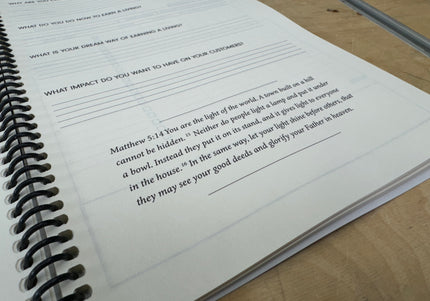 WHAT DO YOU DO NOW TO EARN A LIVING?
WHAT IS YOUR DREAM WAY OF EARNING A LIVING?
WHAT IMPACT DO YOU WANT TO HAVE ON YOUR CUSTOMERS?
Matthew 5:14 You are the light of the world. A town built on a hill
cannot be hidden. 15 Neither do people light a lamp and put it under
a bowl. Instead they put it on its stand, and it gives light to everyone
in the house. 16 In the same way, let your light shine before others, that
they may see your good deeds and glorify your Father in heaven.